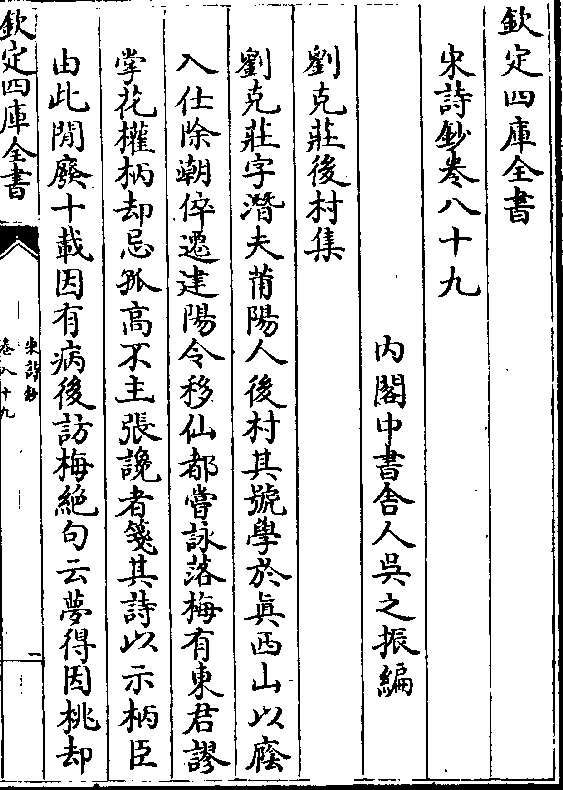 欽定四庫全書
宋詩鈔卷八十九
內閣中書舍人吳之振編
劉克莊後村集
劉克莊字潛夫莆陽人後村其號學於眞西山以廕
入仕除潮倅遷建陽令移仙都嘗詠落梅有東君謬
掌花權柄却忌孤高不主張讒者箋其詩以示柄臣
由此閒廢十載因有病後訪梅絶句云夢得因桃却
欽定四庫全書
宋詩鈔
卷八十九
一